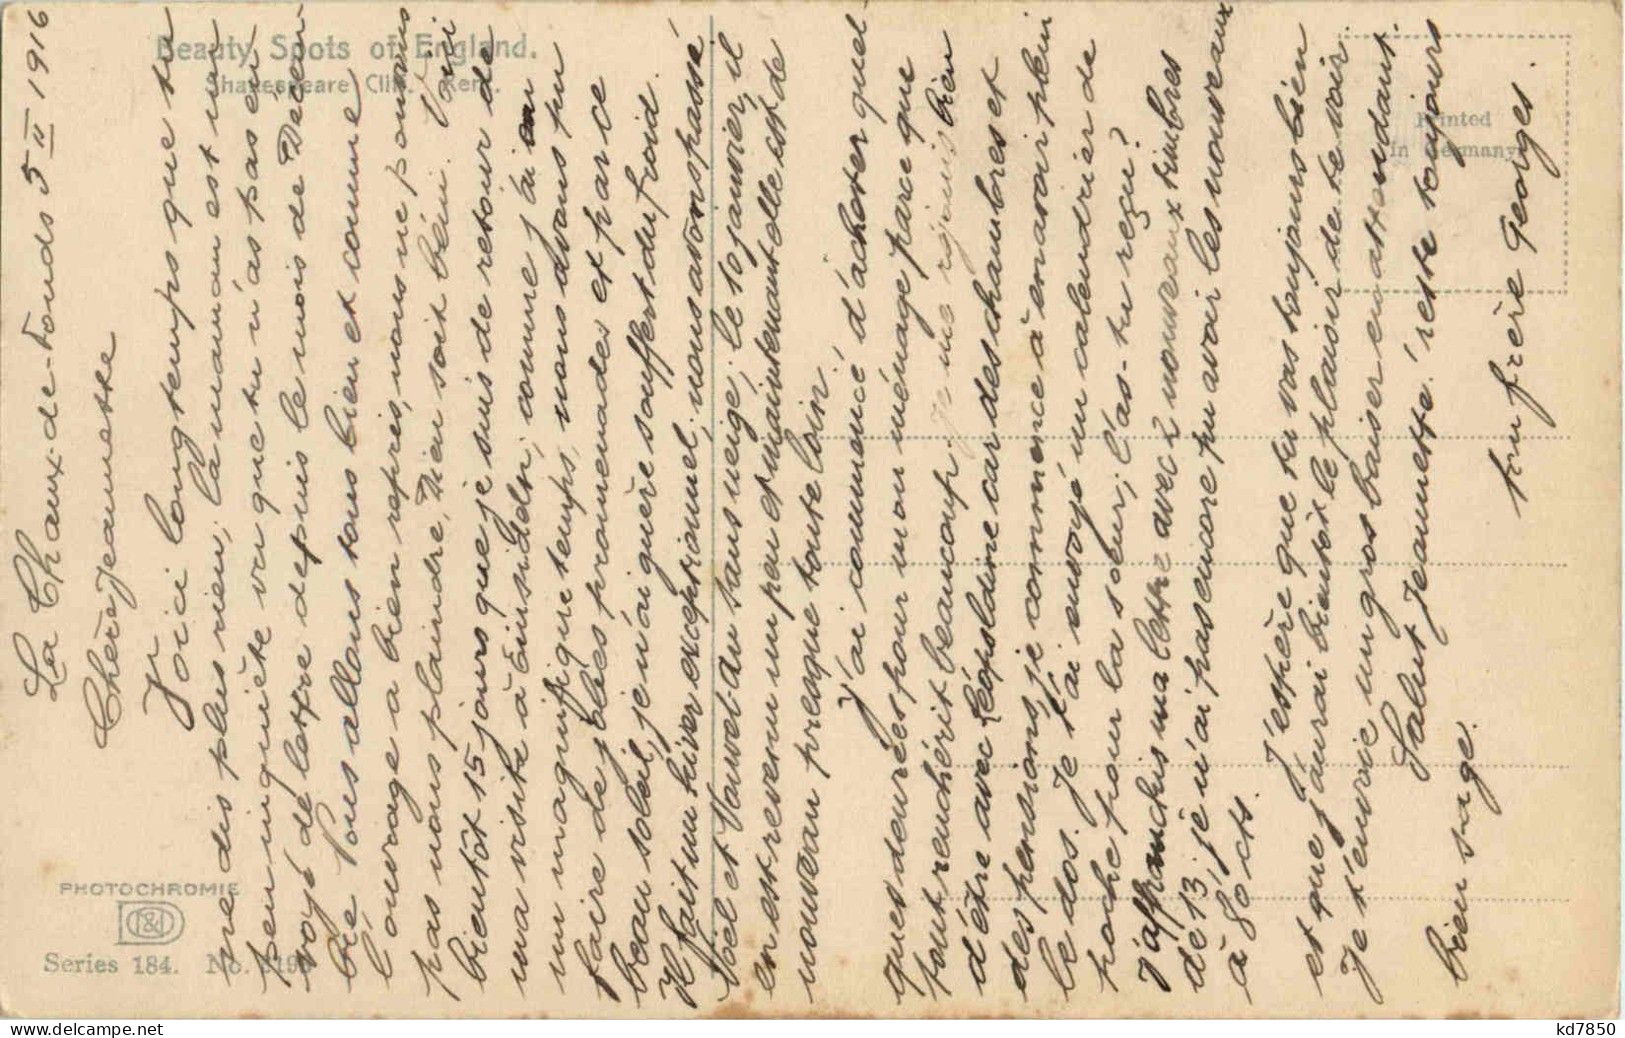 Beauty Spots of England.
Shakespeare Cliff. Kent.
Printed
in Germany
PHOTOCHROMIE
Series 184. No.
La Chaux-de-Fonds 5 II 1916
Chère Jeannette
Voici longtemps que tu
ne dis plus rien; la maman est un
peu inquiète vu que tu n'as pas en-
voyé de lettre depuis le mois de Décem-
bre. Nous allons tous bien et comme
l'ouvrage a bien repris, nous ne pouvons
pas nous plaindre, Dieu soit béni. Voici
bientôt 15 jours que je suis de retour de
ma visite à Einsideln; comme j'ai eu
un magnifique temps, nous avons pu
faire de jolies promenades et par ce
beau soleil, je n'ai guère souffert du froid.
Il fait un hiver exceptionnel; nous avons passé
Noël et Nouvel an sans neige; le 10 janvier, il
en est revenu un peu et maintenant elle est de
nouveau presque toute loin.
J'ai commencé d'acheter quel-
ques denrées pour mon ménage parce que
tout renchérit beaucoup. Je me réjouis bien
d'être avec Léopoldine car des chambres et
des pensions, je commence à en avoir plein
le dos. Je t'ai envoyé un calendrier de
poche pour la soeur; l'as-tu reçu?
J'affranchis ma lettre avec 2 nouveaux timbres
de 13; je n'ai pas encore pu avoir les nouveaux
à 80 cts.
J'espère que tu vas toujours bien
et que j'aurai bientôt le plaisir de te voir.
Je t'envoie un gros baiser en attendant.
Salut Jeannette! reste toujours
bien sage.
ton frère Georges.
kd7850